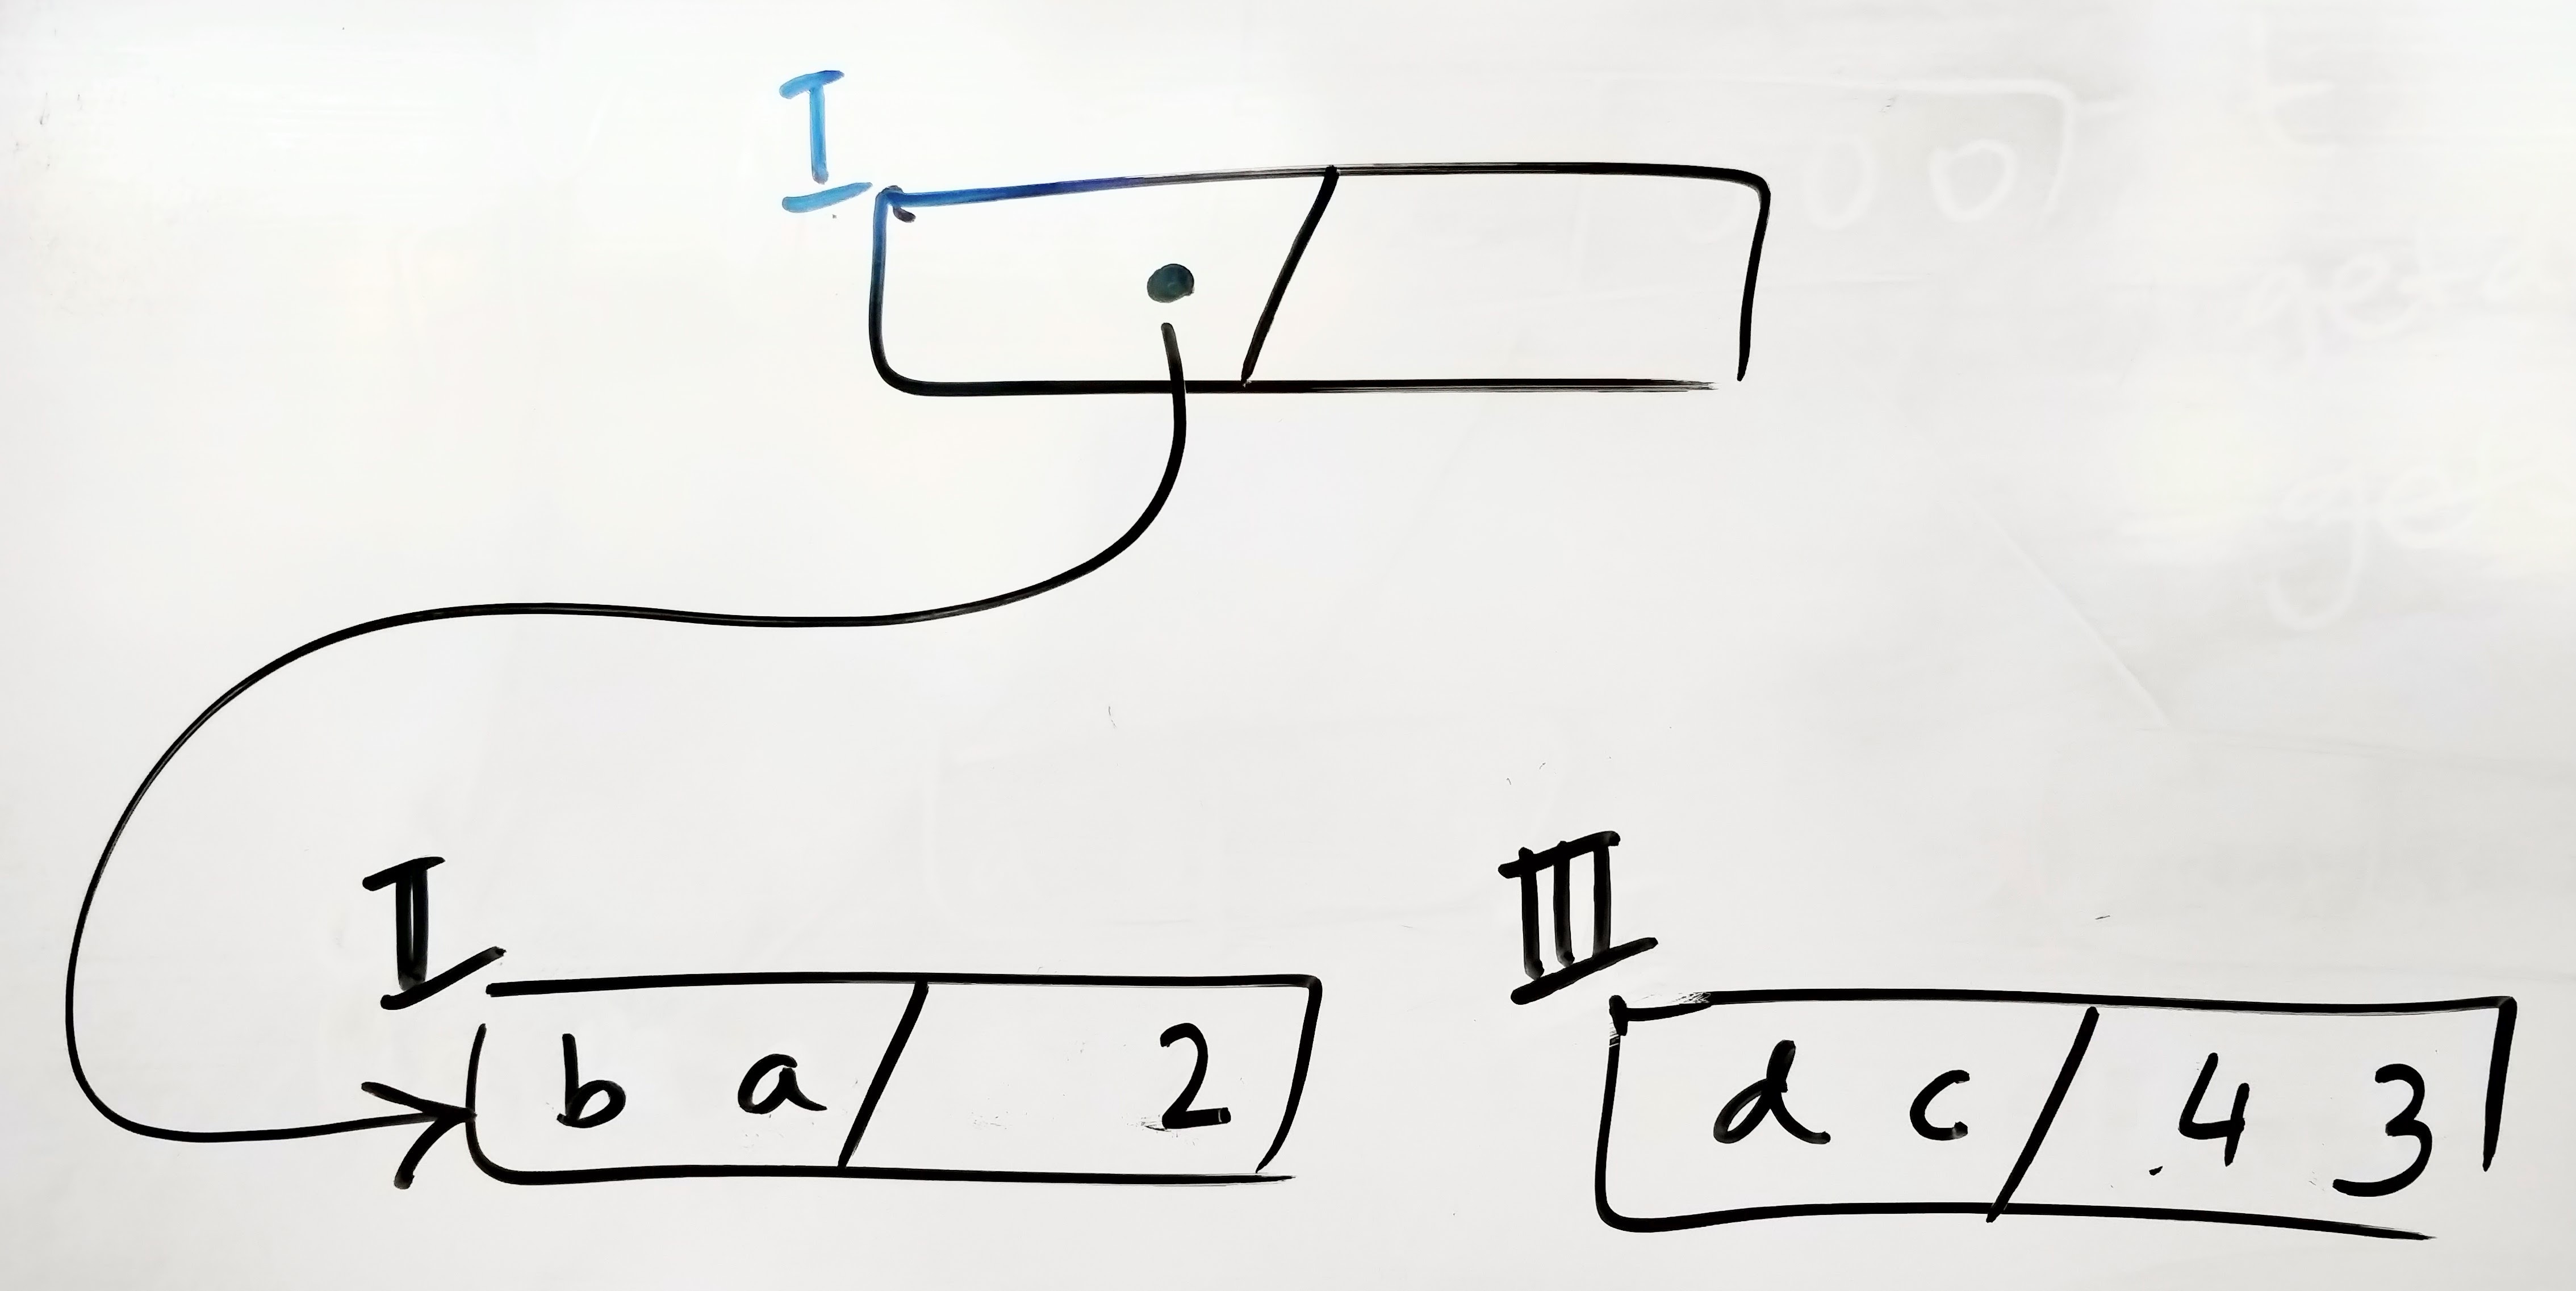 I
II
b a / 2
III
d c / 4 3